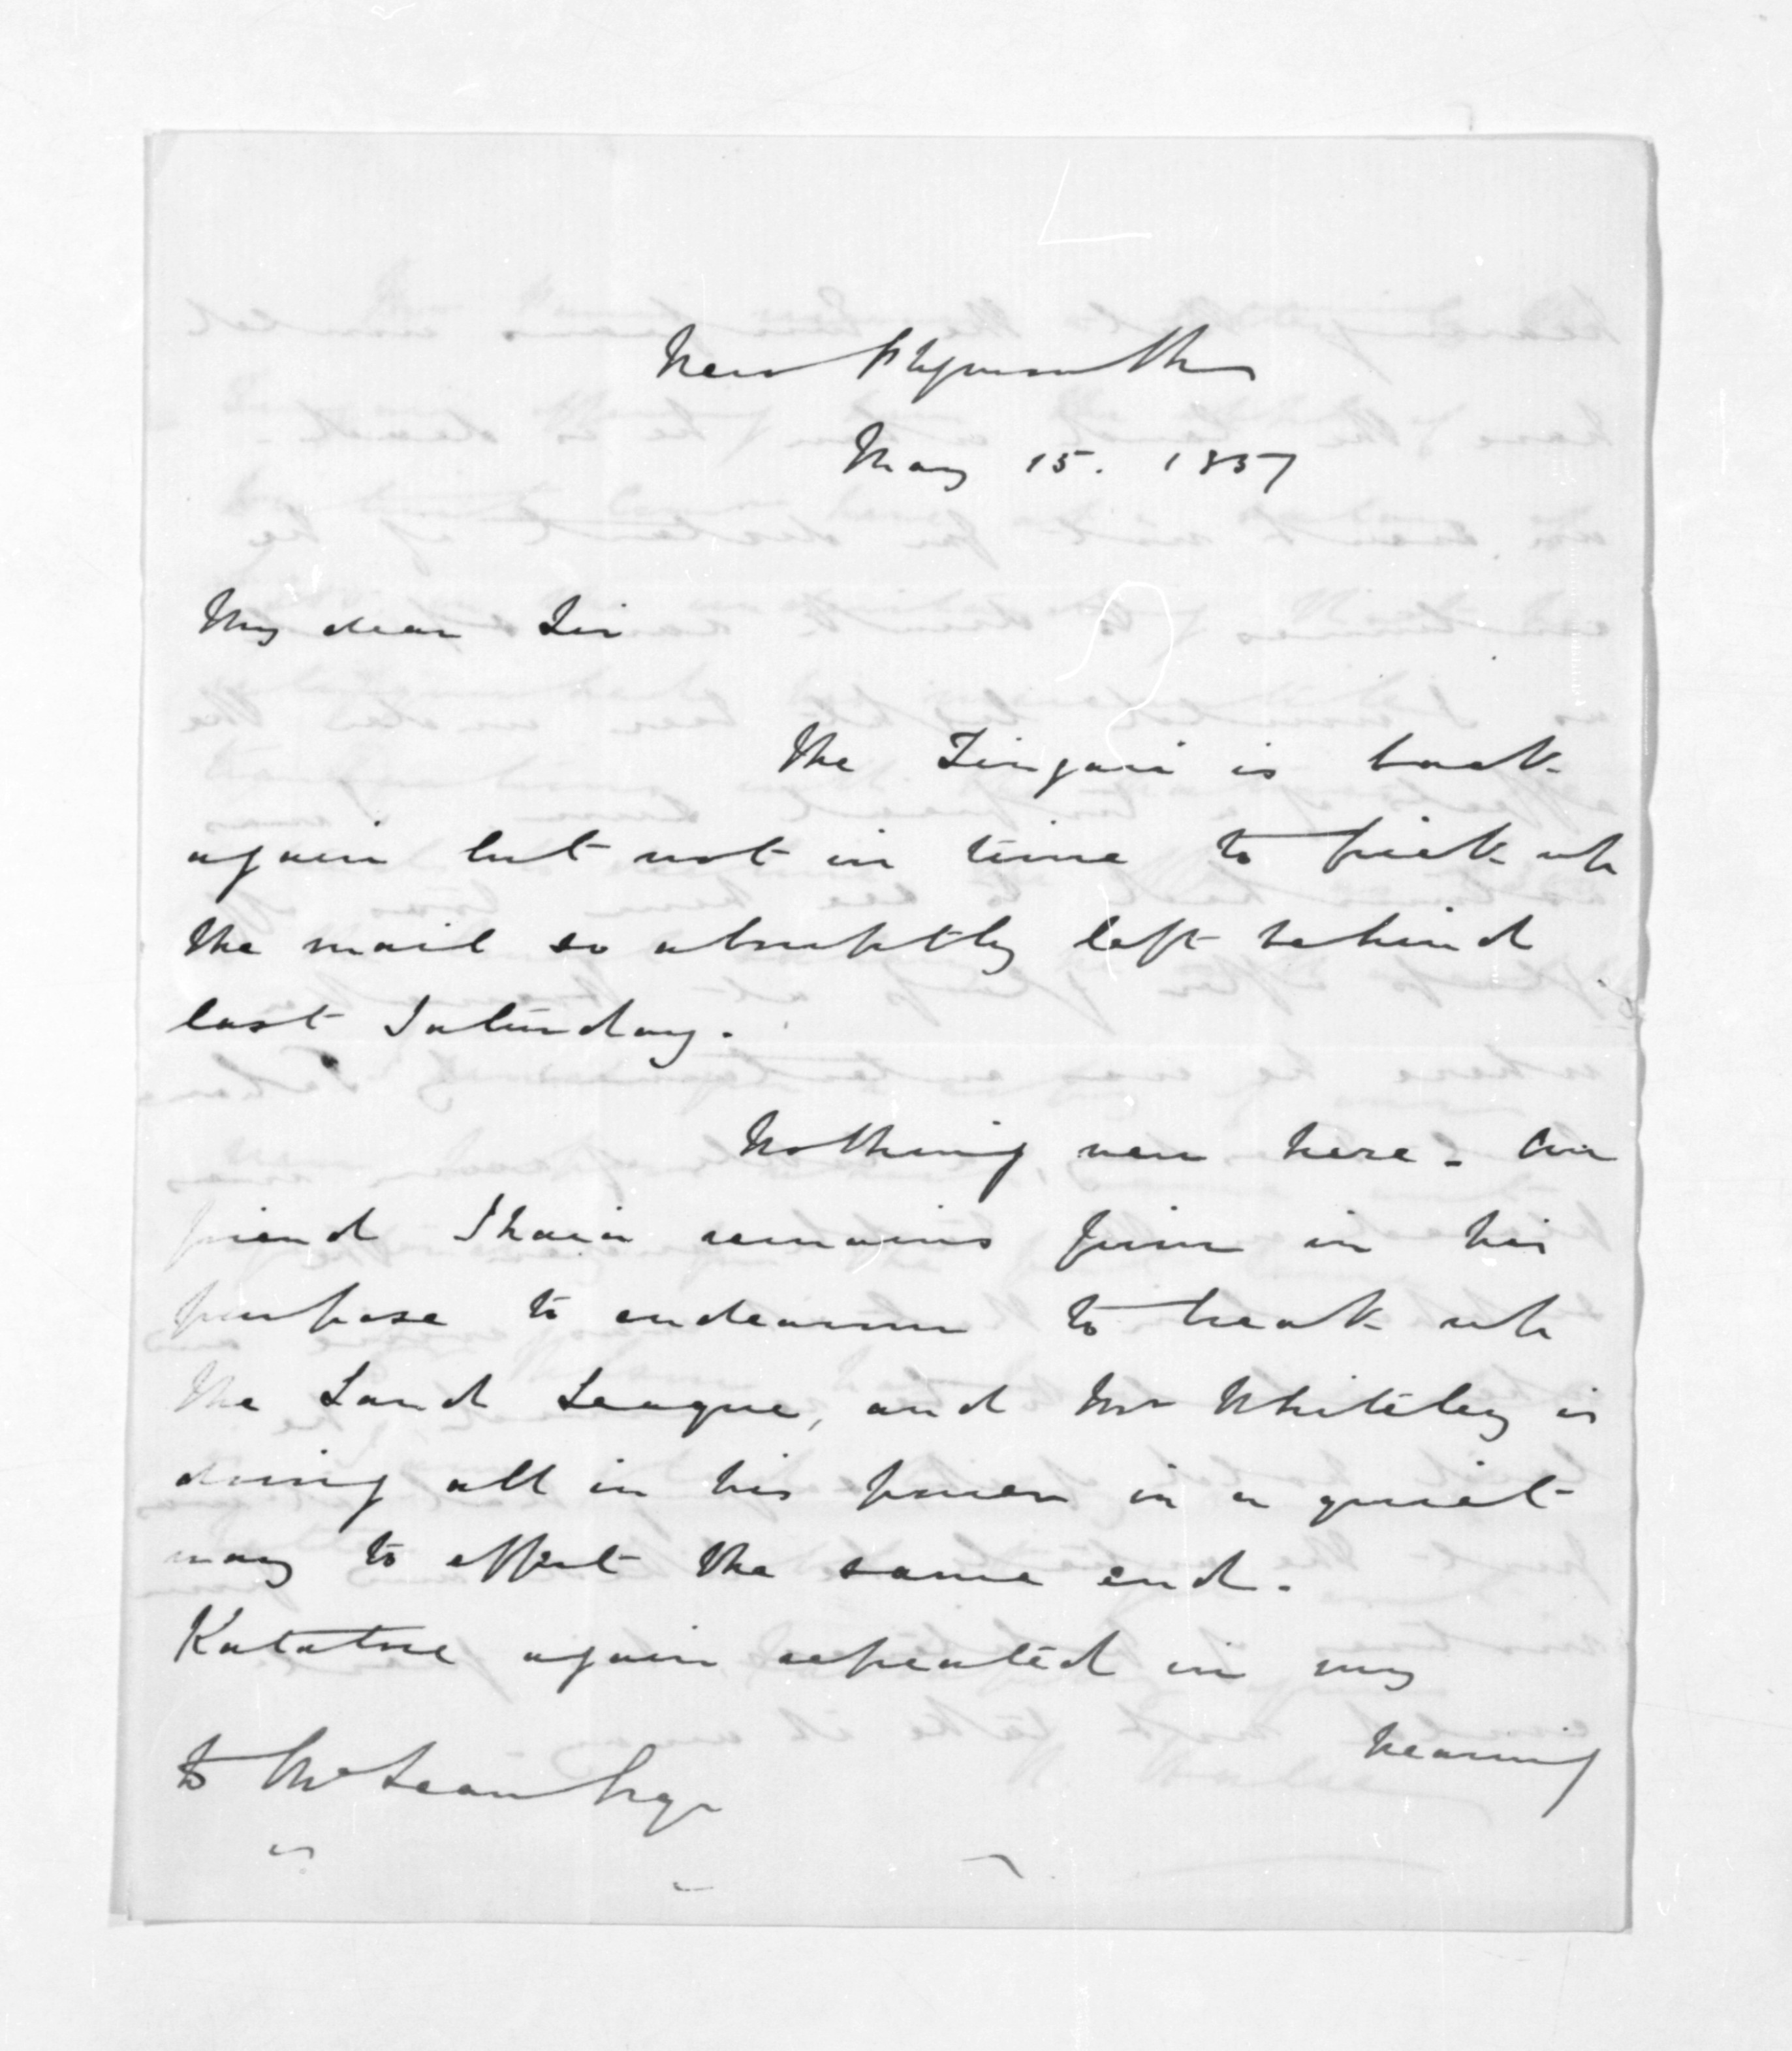 New Plymouth
May 15. 1857
My dear Sir
The Zingari is back
again but not in time to pick up
the mail so abruptly left behind
last Saturday.
Nothing new here. Our
friend Ihaia remains firm in his
purpose to endeavour to break up
the Land League, and Mr Whiteley is
doing all in his power in a quiet
way to effect the same end.
Katatore again repeated in my
hearing
to McLean Esqr